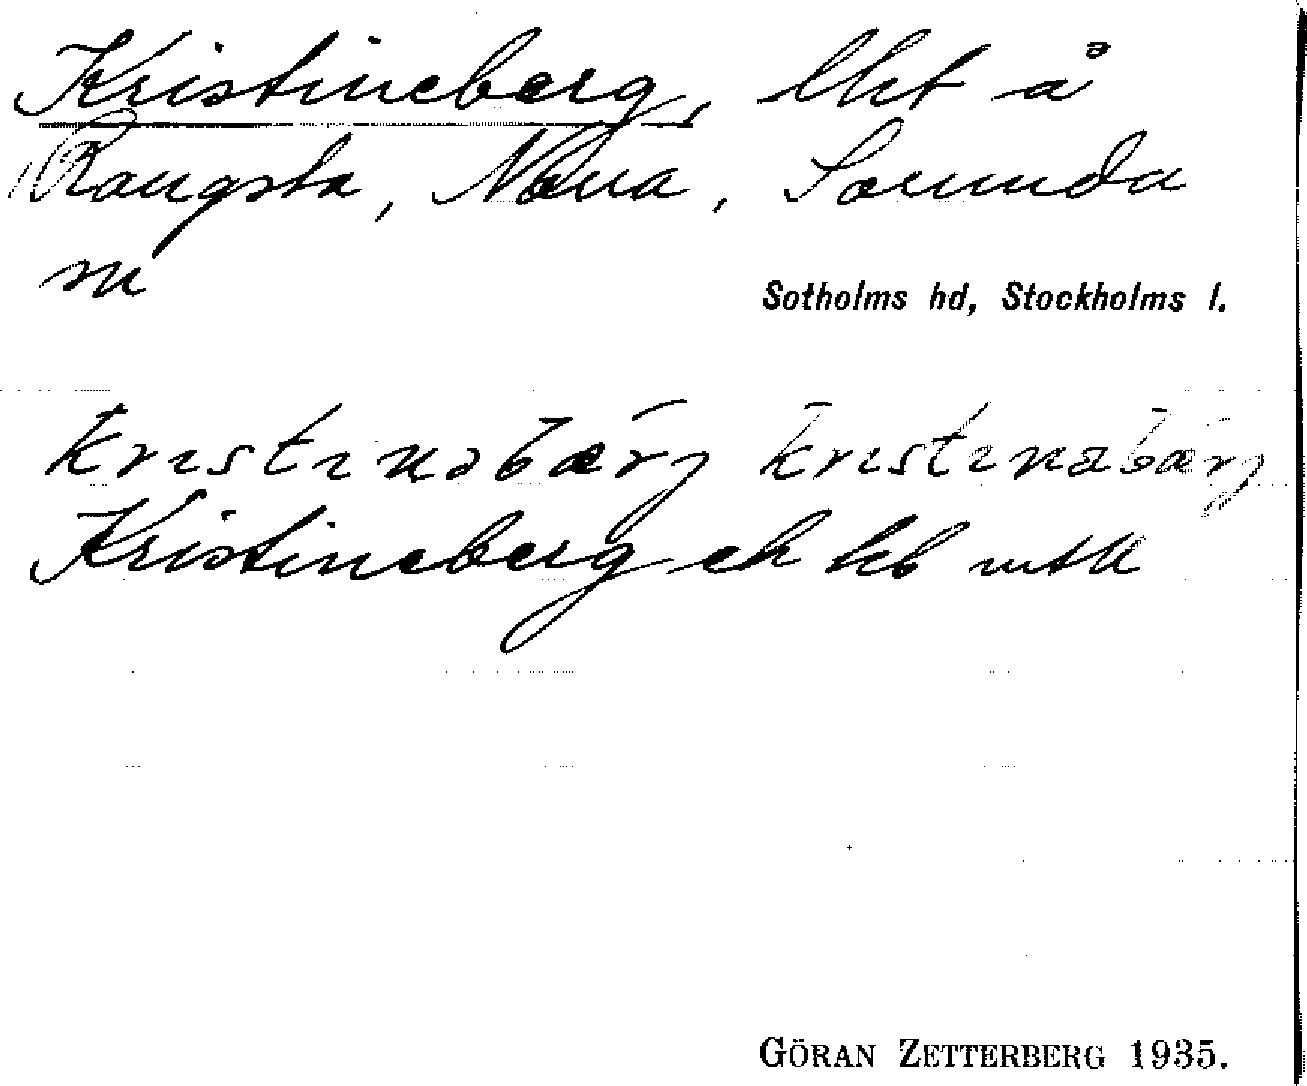 Kristineberg, lht å
Rangsta, Norra, Sorunda
sn
Sotholms hd, Stockholms l.
krıstınəbærj krıstınəbærj
Kristineberg ek kb
GÖRAN ZETTERBERG 1935.